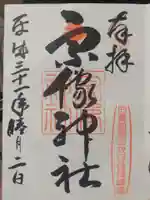 奉拝
宗像神社
平成三十一年睦月二日